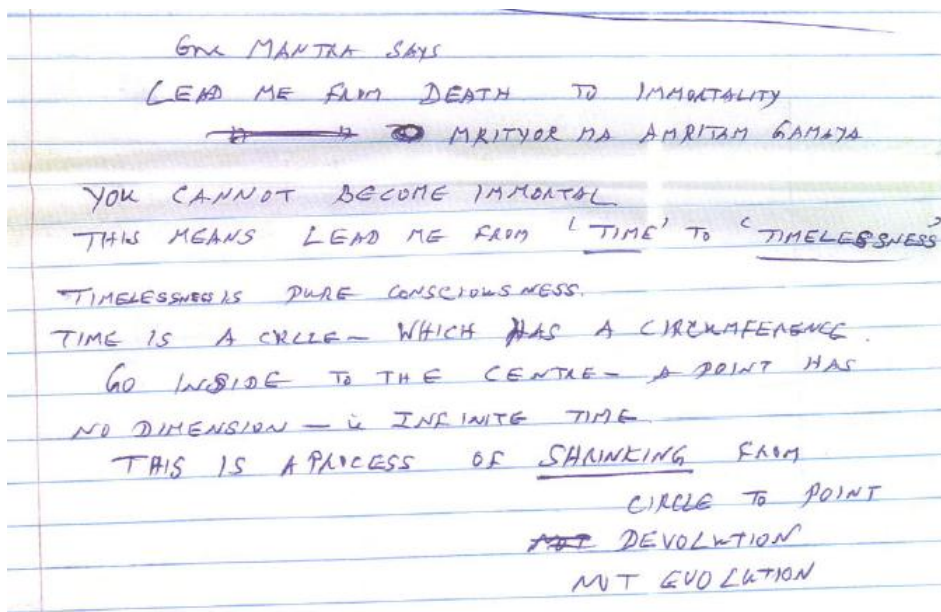 One MANTRA SAYS
LEAD ME FROM DEATH TO IMMORTALITY
MRITYOR MA AMRITAM GAMAYA
YOU CANNOT BECOME IMMORTAL
THIS MEANS LEAD ME FROM 'TIME' TO 'TIMELESSNESS'
TIMELESSNESS IS PURE CONSCIOUSNESS.
TIME IS A CRCLE - WHICH HAS A CIRCUMFERENCE.
GO INSIDE TO THE CENTRE - A POINT HAS
NO DIMENSION - ie INFINITE TIME
THIS IS A PROCESS OF SHRINKING FROM
CIRCLE TO POINT
NOT DEVOLUTION
NOT EVOLUTION